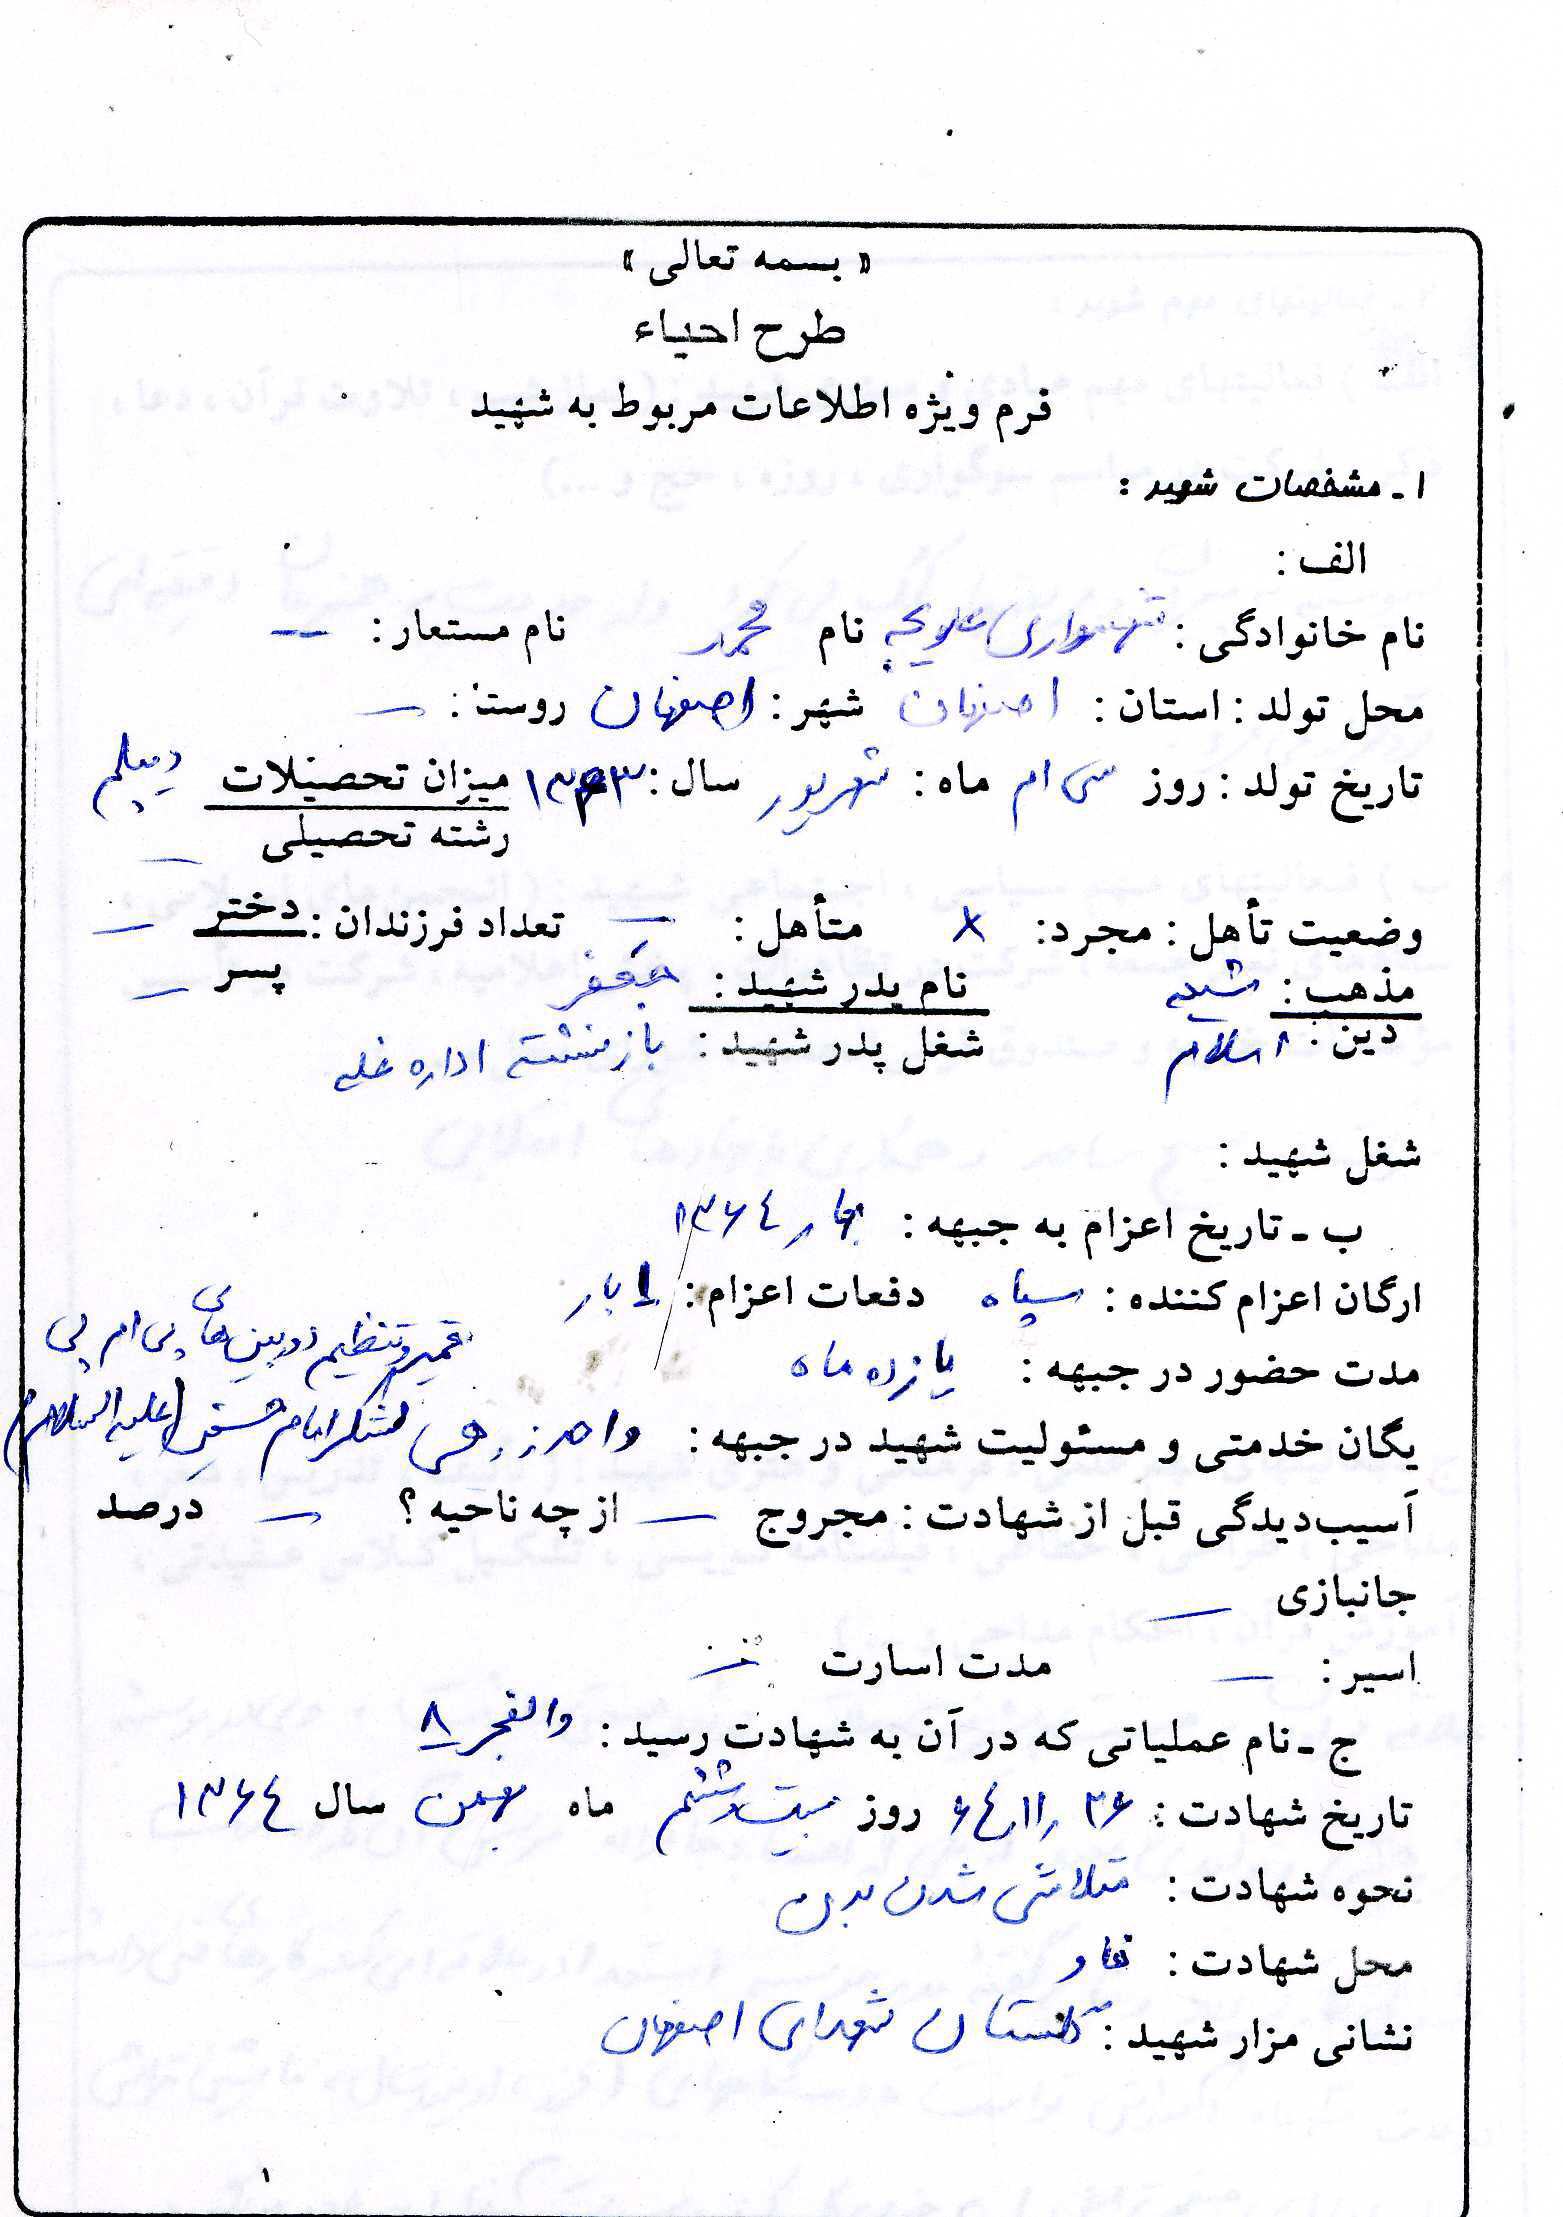 « بسمه تعالی »
طرح احیاء
فرم ویژه اطلاعات مربوط به شهید
۱ـ مشخصات شهید :
الف :
نام خانوادگی : شهسواری علویجه نام محمد نام مستعار : —
محل تولد : استان : اصفهان شهر : اصفهان روستا : —
تاریخ تولد : روز سی ام ماه : شهریور سال : میزان تحصیلات دیپلم
رشته تحصیلی —
وضعیت تأهل : مجرد : × متأهل : — تعداد فرزندان : دختر —
پسر —
مذهب : شیعه نام پدر شهید : جعفر
دین : اسلام شغل پدر شهید : بازنشسته اداره غله
شغل شهید :
ب ـ تاریخ اعزام به جبهه : بهار ۱۳۶۴
ارگان اعزام کننده : سپاه دفعات اعزام : ۱ بار
مدت حضور در جبهه : یازده ماه
تعمیر و تنظیم دوربین های پی ام پی
یگان خدمتی و مسئولیت شهید در جبهه : واحد زرهی لشکر امام حسین (علیه السلام)
آسیب‌دیدگی قبل از شهادت : مجروج — از چه ناحیه ؟ — درصد
جانبازی —
اسیر : — مدت اسارت —
ج ـ نام عملیاتی که در آن به شهادت رسید : والفجر ۸
تاریخ شهادت : ۶۴٫۱۱٫۲۶ روز بیست و ششم ماه بهمن سال ۱۳۶۴
نحوه شهادت : متلاشی شدن بدن
محل شهادت : فاو
نشانی مزار شهید : گلستان شهدای اصفهان
۱